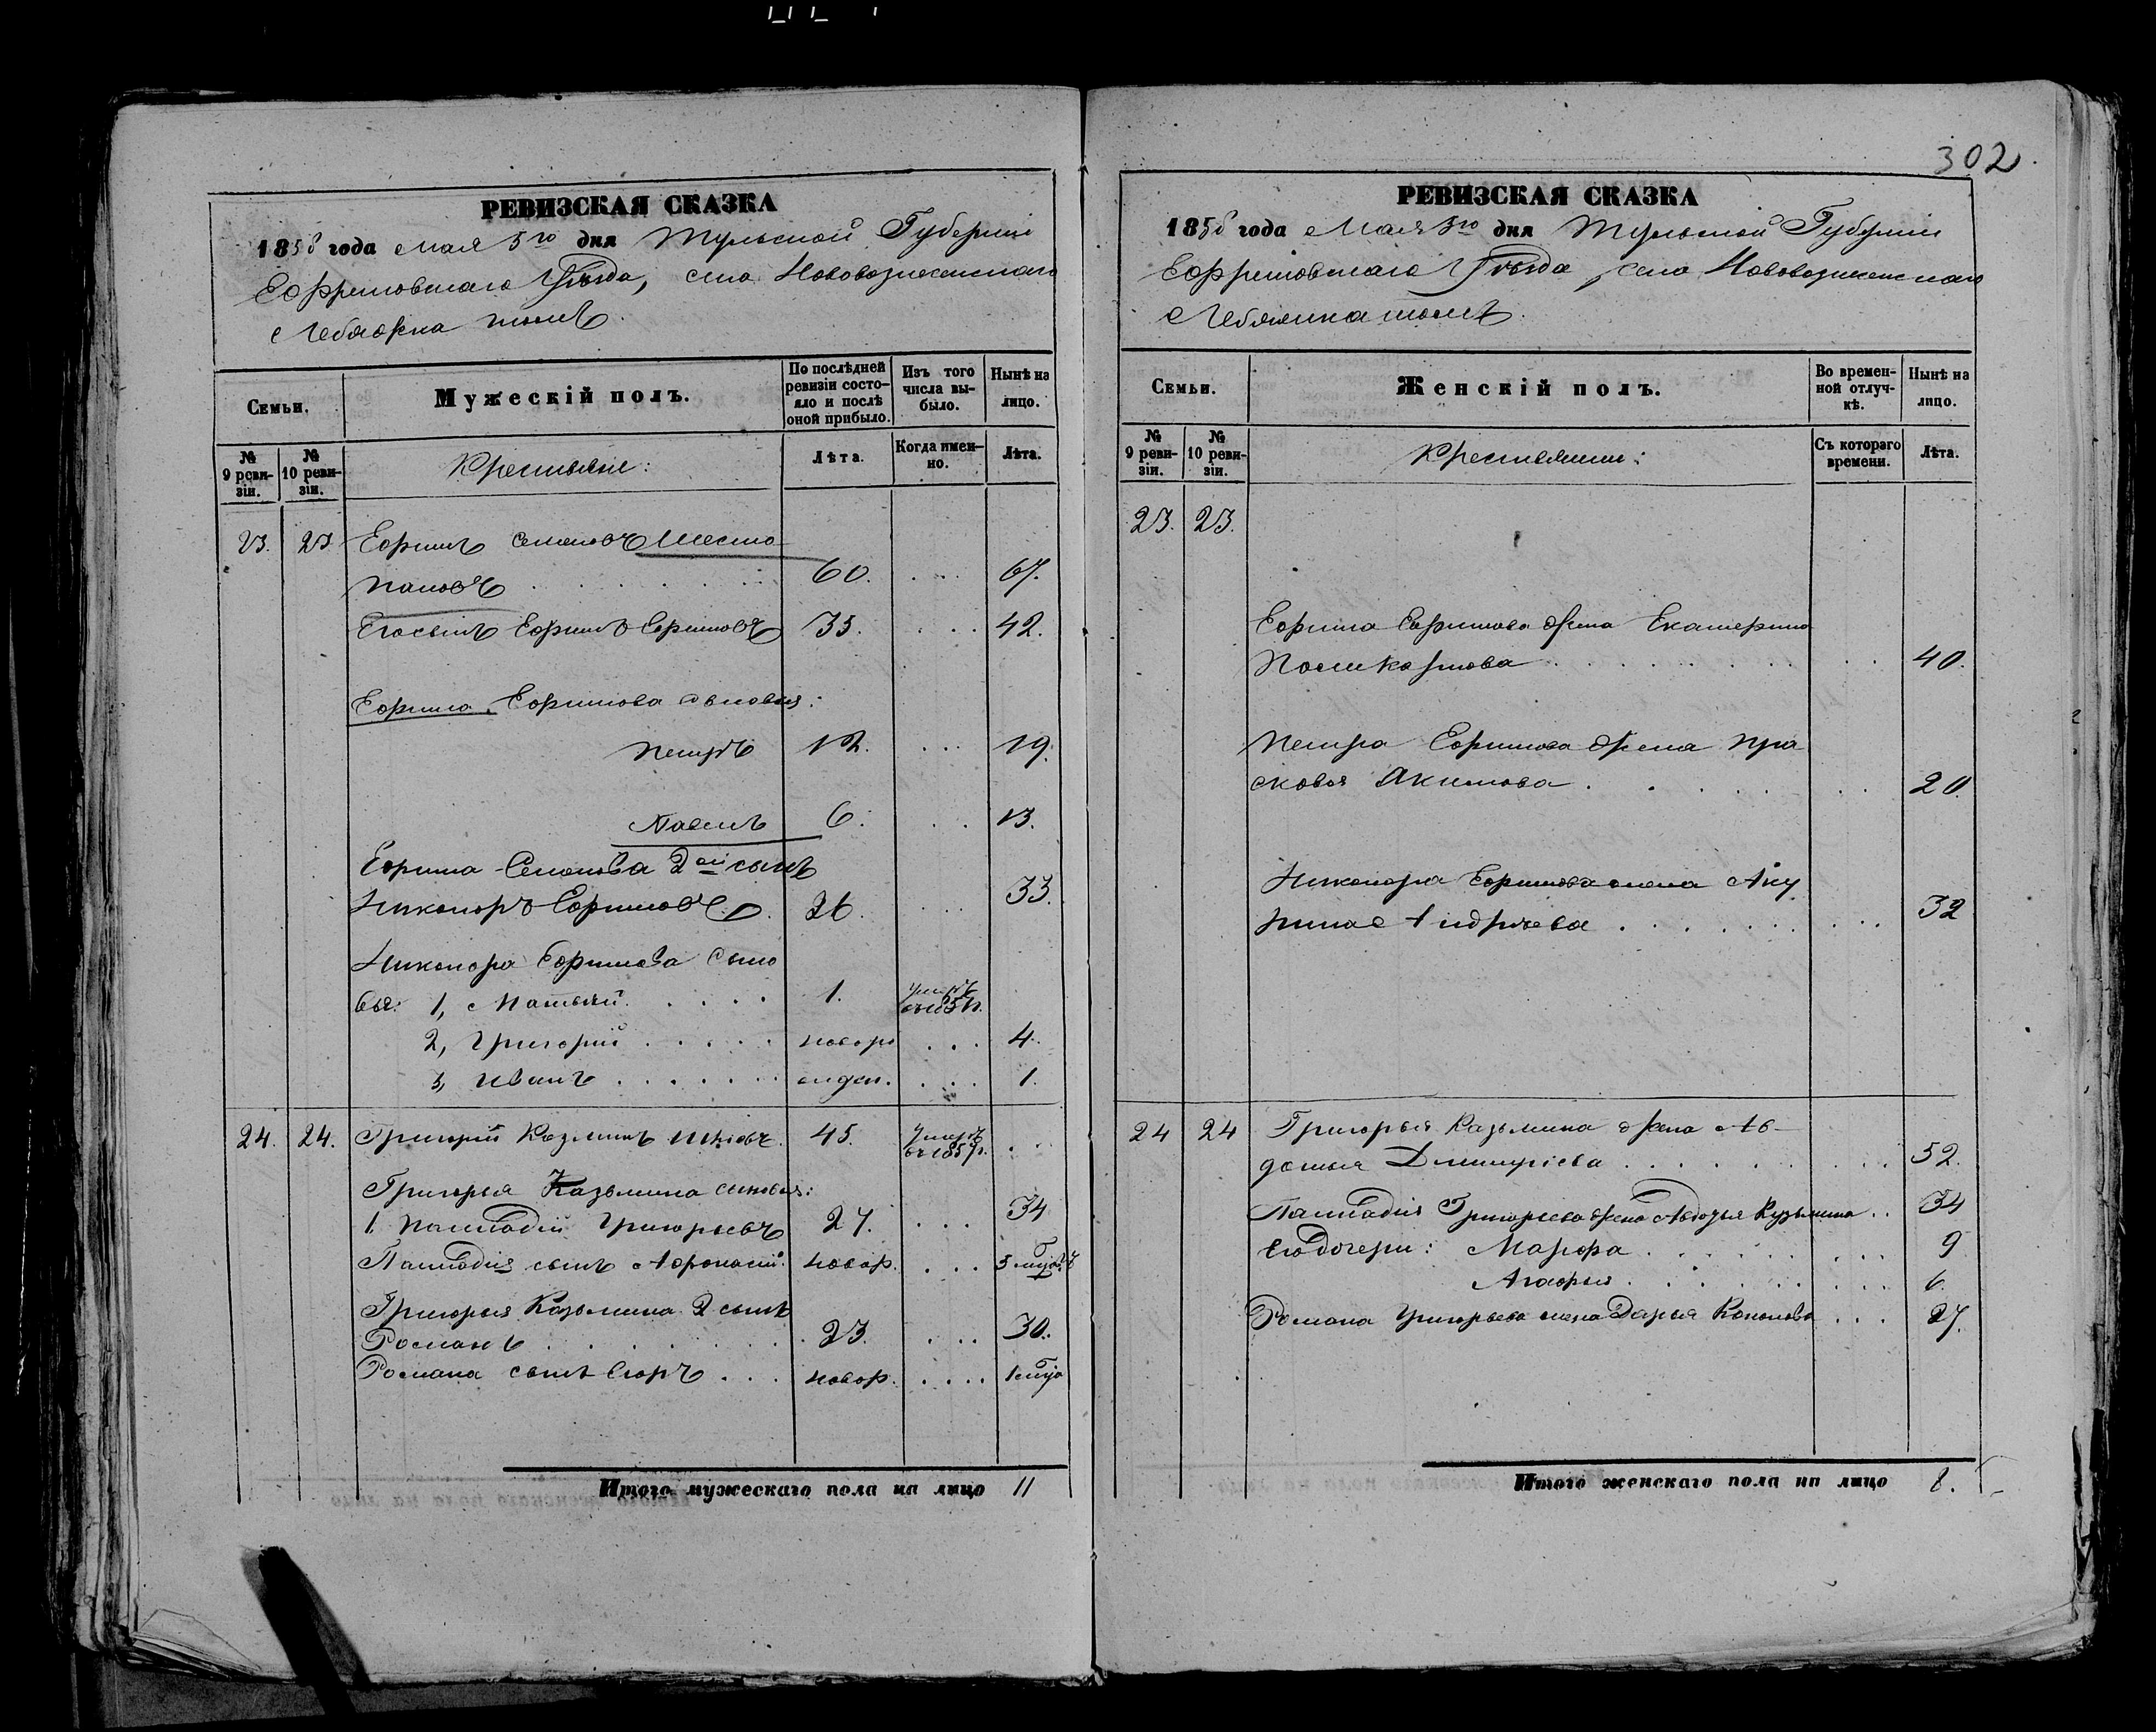 302
РЕВИЗСКАЯ СКАЗКА
1858 года Мая 3го дня Тульской Губерніи
Ефремовскаго Уѣзда, села Нововознесенскаго
Лебяжка тожъ.
Семьи.
Мужескій полъ.
По послѣдней ревизіи состояло и послѣ оной прибыло.
Изъ того числа выбыло.
Нынѣ на лицо.
№ 9 ревизіи.
№ 10 ревизіи.
Крестьяне:
Лѣта.
Когда именно.
Лѣта.
23. 23 Ефимъ Семеновъ Шесто
паловъ 60. 67.
Его сынъ Ефимъ Ефимовъ 35. 42.
Ефима Ефимова сыновья:
Петръ 12. 19.
Павелъ 6. 13.
Ефима Семенова 2ой сынъ
Никоноръ Ефимовъ 26. 33.
Никонора Ефимова сыно
вья: 1, Матвѣй 1. умеръ
2, Григорій новоро 4.
3, Иванъ 1.
24. 24. Григорій Козминъ 45. Умеръ
въ 1857г.
Григорья Казьмина сыновья:
1. Палладій Григорьевъ 27. 34
Палладія сынъ Афонасій новор. 3
Григорья Козьмина 2 сынъ
Романъ 23. 30.
Романа сынъ Егоръ новор. 1
Итого мужескаго пола на лицо 11
РЕВИЗСКАЯ СКАЗКА
1858 года Мая 3го дня Тульской Губерніи
Ефремовскаго Уѣзда, села Нововознесенскаго
Лебяжка тожъ.
Семьи.
Женскій полъ.
Во временной отлучкѣ.
Нынѣ на лицо.
№ 9 ревизіи.
№ 10 ревизіи.
Крестьянки:
Съ котораго времени.
Лѣта.
23. 23.
Ефима Ефимова жена Екатерина
Поликарпова 40.
Петра Ефимова жена Пра
сковья Акимова 20.
Никонора Ефимова жена Аку
лина Андреева 32
24 24 Григорья Казьмина жена Ав-
дотья Дмитріева 52.
Палладія Григорьева жена Авдотья Кузьмина 34
Его дочери: Марфа 9
Агафья 6.
Романа Григорьева жена Дарья Кононова 27.
Итого женскаго пола на лицо 8.